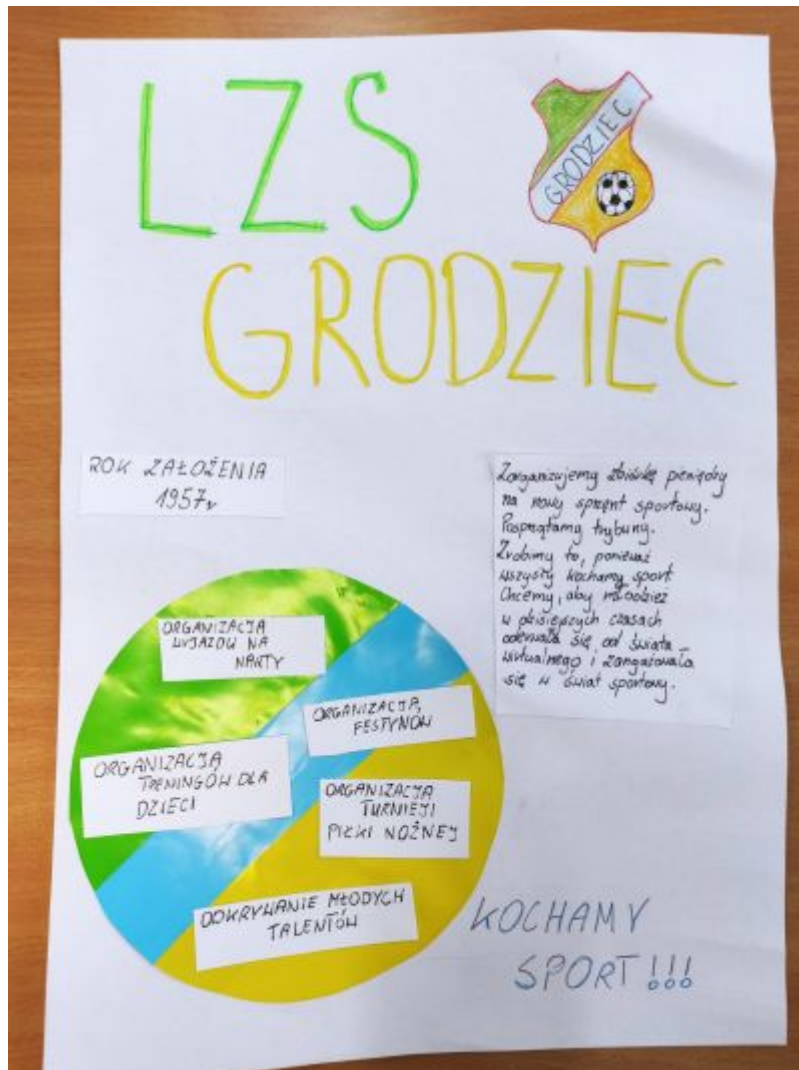 LZS
GRODZIEC
GRODZIEC
ROK ZAŁOŻENIA
1957r
Zorganizujemy zbiórkę pieniędzy
na nowy sprzęt sportowy.
Posprzątamy trybuny.
Zrobimy to, ponieważ
wszyscy kochamy sport
Chcemy, aby młodzież
w dzisiejszych czasach
oderwała się od świata
wirtualnego i zangażowała
się w świat sportowy.
ORGANIZACJA
WYJAZDÓW NA
NARTY
ORGANIZACJA
FESTYNÓW
ORGANIZACJA
TRENINGÓW DLA
DZIECI
ORGANIZACJA
TURNIEJI
PIŁKI NOŻNEJ
ODKRYWANIE MŁODYCH
TALENTÓW
KOCHAMY
SPORT!!!